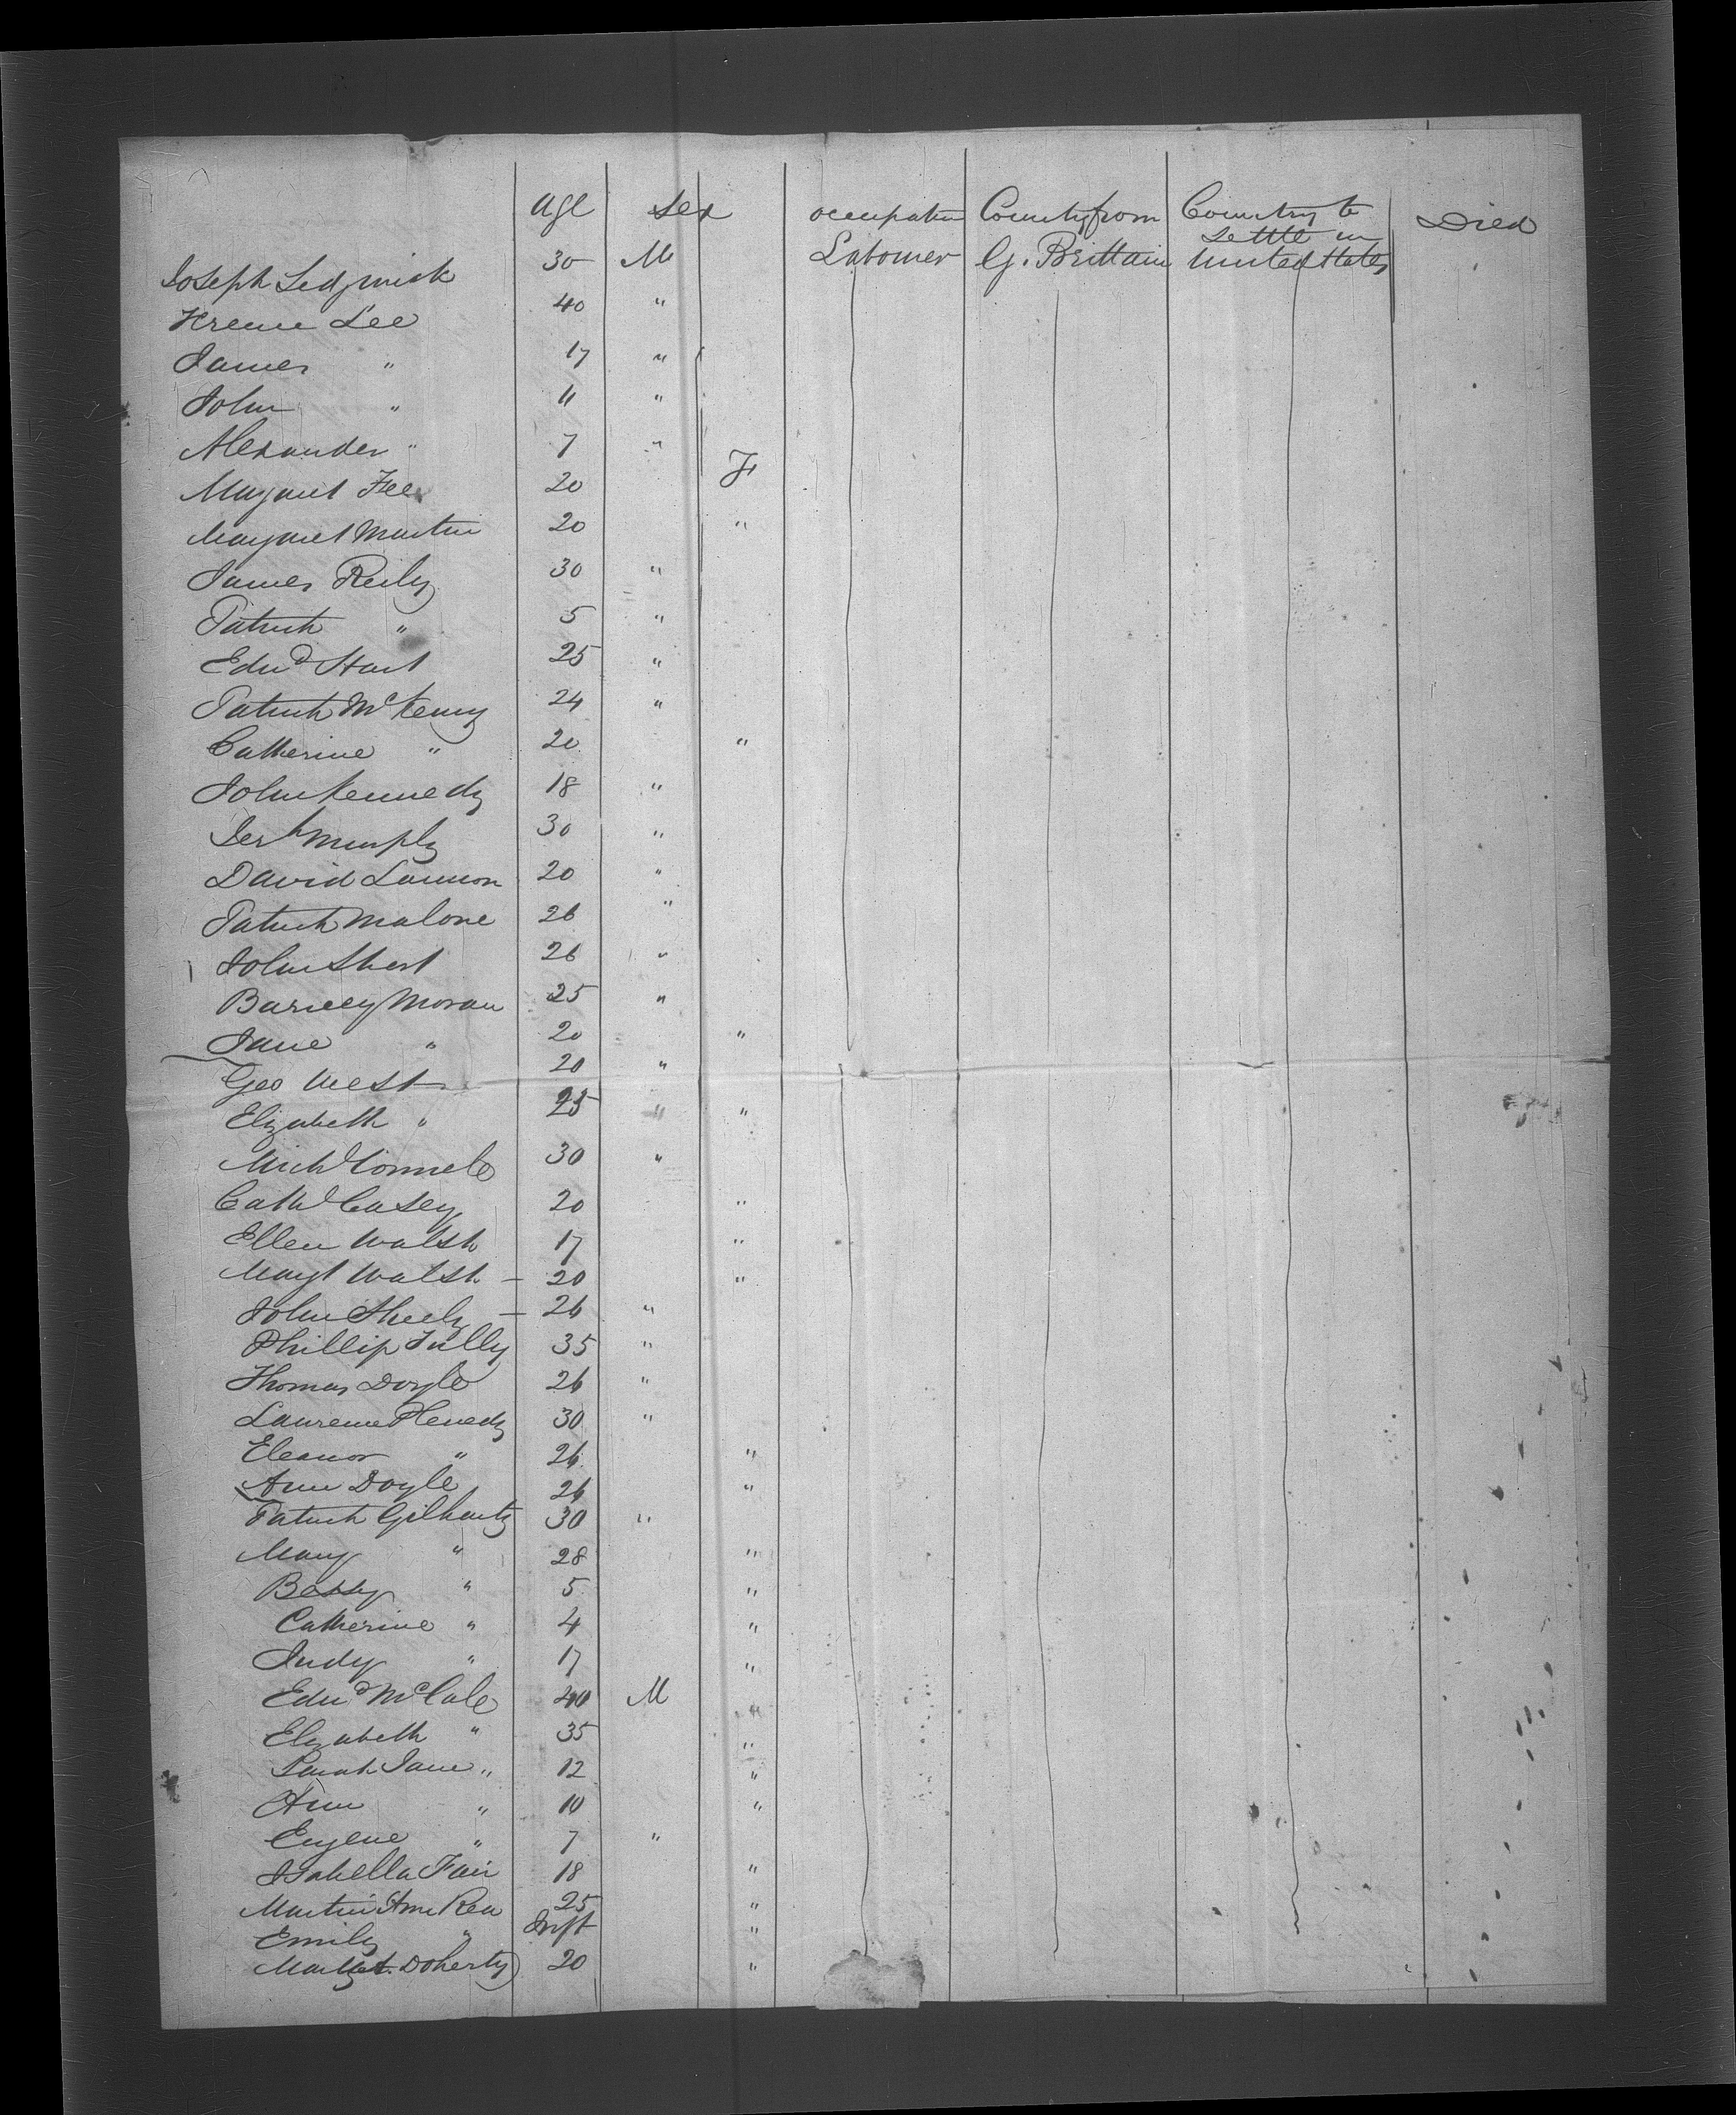 Age Sex occupation Country from Country to settle in Died
Joseph Sedgwick 30 M Labourer G. Brittain United States
Lee 40 "
James " 17 "
John " 11 "
Alexander " 7 "
Margaret Fee 20 F
Margaret Martin 20 "
James Reily 30 "
Patrick " 5 "
Edwd Hart 25 "
Patrick McKenny 24 "
Catherine " 20 "
John Kennedy 18 "
Jerh Murphy 30 "
David Lannon 20 "
Patrick Malone 26 "
John Short 26 "
Barney Moran 25 "
Jane " 20 "
Geo West 20 "
Elizabeth " 25 " "
Michl Connele 30 "
Cath Casey 20 "
Ellen Walsh 17 "
Margt Walsh – 20 "
John Sheely – 26 "
Phillip Tully 35 "
Thomas Doyle 26 "
Laurence 30 "
Eleanor " 26 "
Ann Doyle 26 "
Patrick 30 "
Mary " 28 "
Bessy " 5 "
Catherine " 4 "
Judy " 17 "
Edwd McCale 40 M "
Elizabeth " 35 "
Sarah Jane " 12 "
Ann " 10 "
Eugene " 7 "
Isabella Fair 18 "
Martin Ann Rea 25 "
Emily " Inft "
Doherty 20 "